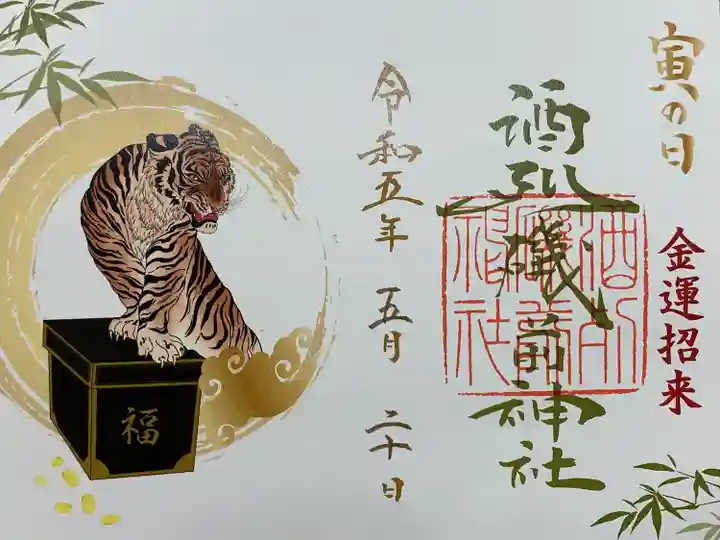 寅の日
金運招来
酒列磯前神社
酒列磯前神社
令和五年 五月 二十日
福